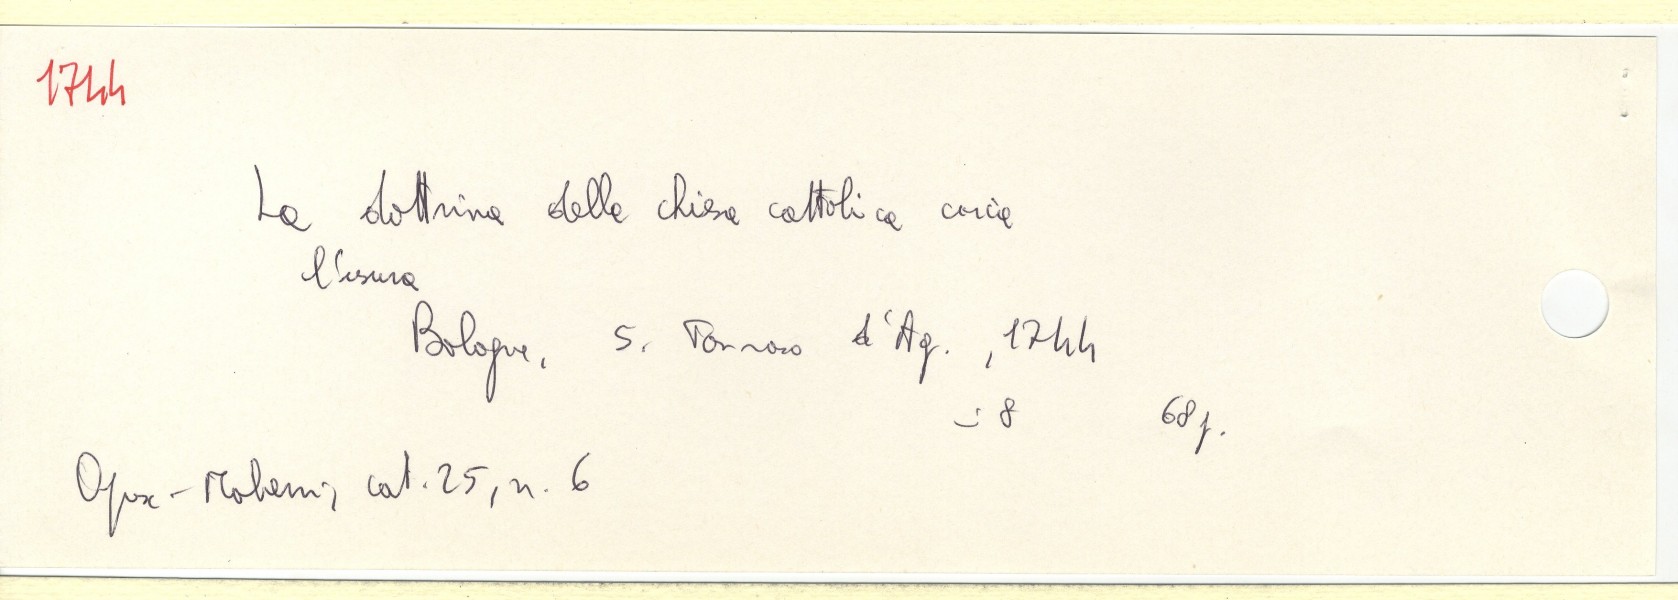 1744
La dottrina della chiesa cattolica circa
l'usura
Bologna, S. Tommaso d'Aq., 1744
in 8 68 p.
cat. 25, n. 6